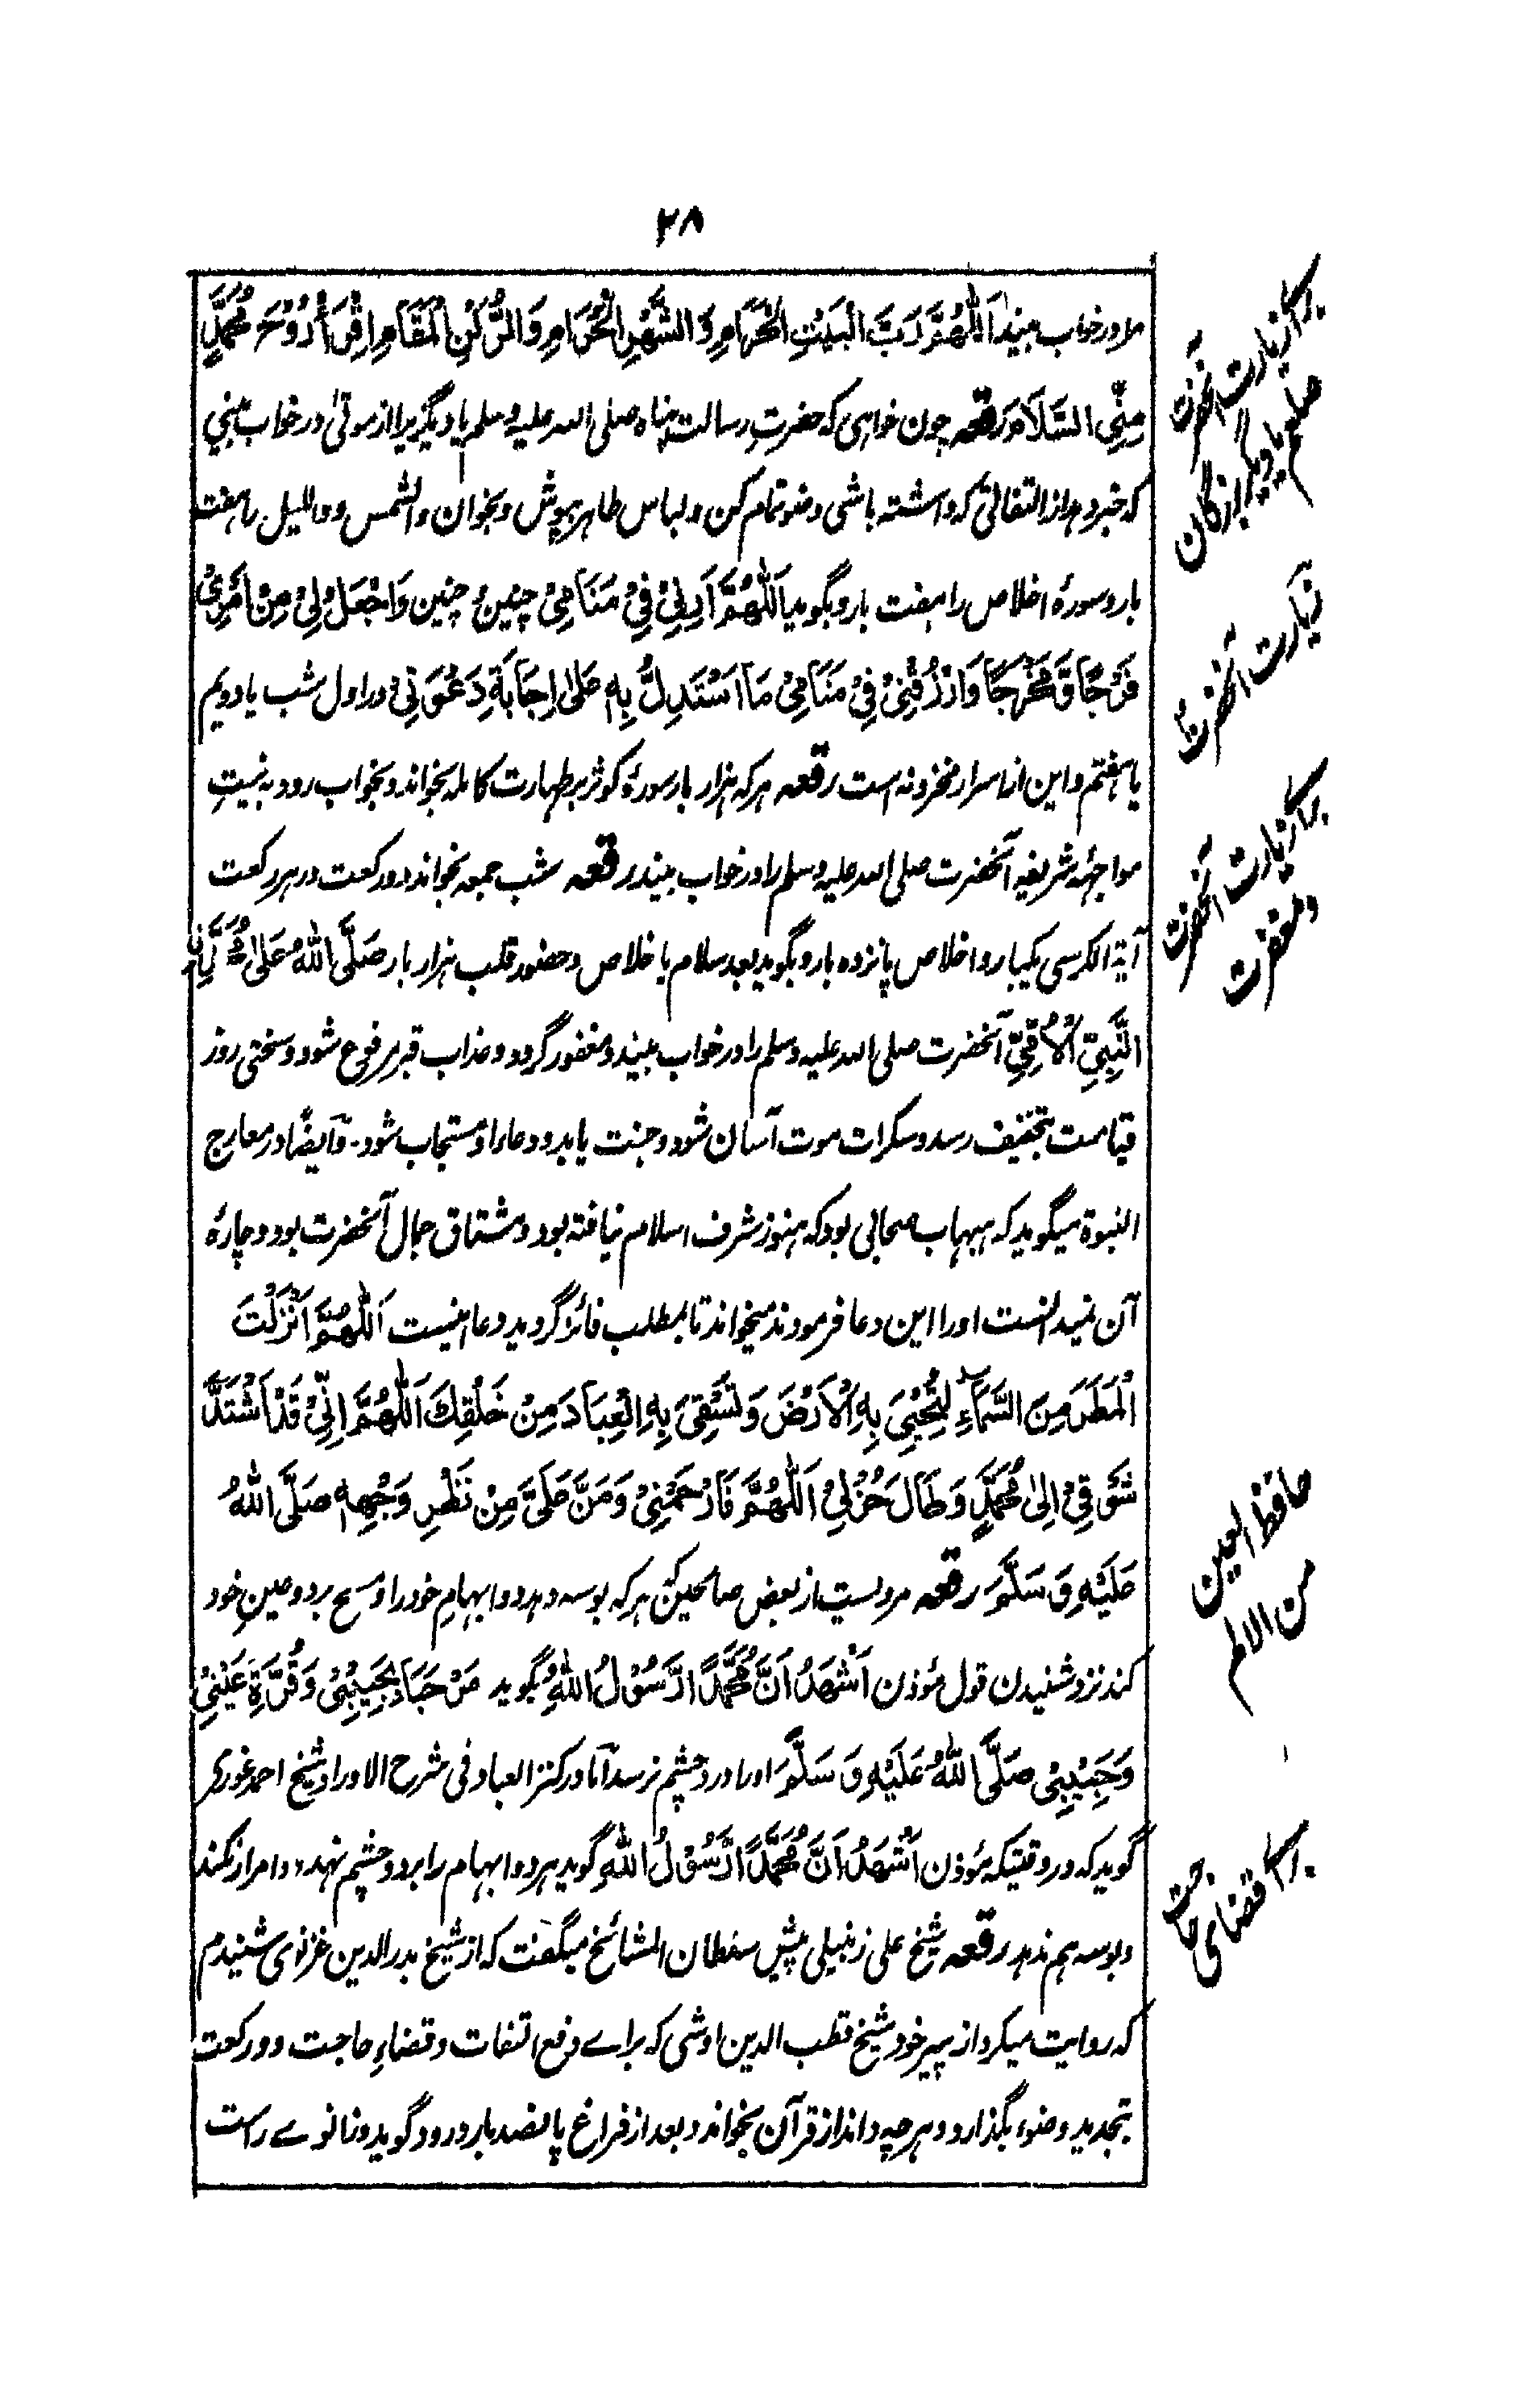 ۲۸
مرا در خواب بیند اَللّٰهُمَّ رَبَّ الْبَيْتِ الْحَرَامِ وَالشَّهْرِ الْحَرَامِ وَالرُّكْنِ الْمَقَامِ اِقْرَأْ رُوْحَ مُحَمَّدٍ
مِنِّی السَّلَامَ رقعه چون خواهی که حضرتِ رسالت پناه صلی الله علیه وسلم یا دیگریرا از موتیٰ در خواب بینی
که خبر دهد از التفاتی که داشته باشی وضو تمام کن و لباس طاهر بپوش و بخوان والشمس و واللیل را هفت
بار و سورهٔ اخلاص را هفت بار و بگوید اَللّٰهُمَّ اَرِنِیْ فِیْ مَنَامِیْ چنین چنین وَاجْعَلْ لِیْ مِنْ اَمْرِیْ
فَرَجًا وَّ مَخْرَجًا وَارْزُقْنِیْ فِیْ مَنَامِیْ مَا اَسْتَدِلُّ بِهٖ عَلٰی اِجَابَةِ دَعْوَتِیْ در اول شب یا دویم
یا هفتم و این از اسرار مخزونه است رقعه هر که هزار بار سورهٔ کوثر بر طهارت کامله بخواند و بخواب رود به نیتِ
مواجههٔ شریفه آنحضرت صلی الله علیه وسلم را در خواب بیند رقعه شب جمعه بخواند دو رکعت در هر رکعت
آیة الکرسی یکبار و اخلاص پانزده بار و بگوید بعد سلام باخلاص و حضور قلب هزار بار صَلَّی اللّٰهُ عَلٰی مُحَمَّدٍ
النَّبِیِّ الْاُمِّیِّ آنحضرت صلی الله علیه وسلم را در خواب بیند و مغفور گردد و عذاب قبر مرفوع شود و سختی روز
قیامت بتخفیف رسد و سکرات موت آسان شود و جنت یابد و دعاء او مستجاب شود - و ایضًا در معارج
النبوة میگوید که صحابی بود که هنوز شرف اسلام نیافته بود و مشتاق جمال آنحضرت بود و چارهٔ
آن نمیدانست او را این دعا فرمودند میخواند تا بمطلب فائز گردید دعا اینست اَللّٰهُمَّ اَنْزَلْتَ
الْمَطَرَ مِنَ السَّمَاءِ لِتُحْیِیَ بِهِ الْاَرْضَ وَتَسْقِیَ بِهِ الْعِبَادَ مِنْ خَلْقِكَ اَللّٰهُمَّ اِنِّیْ قَدْ اشْتَدَّ
شَوْقِیْ اِلٰی مُحَمَّدٍ وَطَالَ حُزْنِیْ اَللّٰهُمَّ فَارْحَمْنِیْ وَمَنَّ عَلَیَّ مِنْ نَظْرِ وَجْهِهٖ صَلَّی اللّٰهُ
عَلَیْهِ وَ سَلَّمَ رقعه مرویست از بعض صالحین که هر که بوسه دهد دو ابهامِ خود را و مسح بر دو عینِ خود
کند نزد شنیدن قول مؤذن اَشْهَدُ اَنَّ مُحَمَّدًا رَّسُوْلُ اللّٰهِ بگوید مَرْحَبًا بِحَبِیْبِیْ وَقُرَّةِ عَیْنِیْ
وَحَبِیْبِیْ صَلَّی اللّٰهُ عَلَیْهِ وَ سَلَّمَ او را درد چشم نرسد اما در کنز العباد فی شرح الاوراد شیخ احمد غوری
گوید که در وقتیکه مؤذن اَشْهَدُ اَنَّ مُحَمَّدًا رَّسُوْلُ اللّٰهِ گوید هر دو ابهام را بر دو چشم نهد و امرار نکند
و بوسه هم ندهد رقعه شیخ علی زنبیلی پیش سلطان المشائخ میگفت که از شیخ بدر الدین غزنوی شنیدم
که روایت میکرد از پیر خود شیخ قطب الدین اوشی که برای دفع التفات و قضاءِ حاجت دو رکعت
بتجدید وضوء بگذارد و هر چه داند از قرآن بخواند و بعد از فراغ پانصد بار درود گوید و زانوے راست
برای زیارت آنحضرت
صلعم یا دیگر بزرگان
زیارت آنحضرت
برای زیارت آنحضرت
و مغفرت
حافظ العین
من الالم
برای قضای حاجت